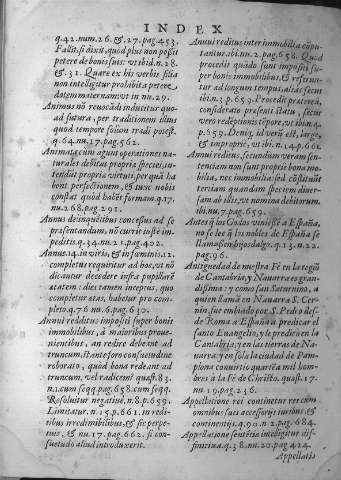 INDEX
q.42.num.26.& 27.pag.453.
Fallit si dixit, quod plus non possit
petere de bonis suis: vt ibid.n.28.
& .31. Quare ex his verbis filia
non intelligitur prohibita petere
dotem maternam: vt in nu.29.
Animus nō reuocādi inducitur quo-
ad futura, per traditionem illius
quod tempore solum tradi potest.
q.64.nu.17.pag.562.
Animatæ cum agunt operationes na-
turales debitas propriæ speciei, in-
tendūt propria virtuti, per quā ha
bent perfectionem, & tunc nobis
constat quòd habet formam q.17.
nu.268.pag.291.
Annus delinquentibus concessus ad se
præsentandum, nō currit iuste im-
peditis.q.34.nu.21.pag.402.
Annus.14.in viris, & in fœminis.12.
completur requiritur ad hoc, vt nō
dicantur decedere infra pupillarē
ætatem: dies tamen inceptus, quo
completur ætas, habetur pro com-
pleto.q.76 nu.6.pag.630.
Annui redditus impositi super bonis
immobilibus, à maioribus proue-
nientibus, an redire debeant ad
truncum, stante foro consuetudine
roborato, quod bona redeant ad
truncum, vel radicem? quæst.83.
n.1.cum seqq.pag.658.cum seqq.
Resoluitur negatiuè, n.8.p.659.
Limitatur.n.15.p.661. in redi-
tibus irredimibilibus, & sic perpe-
tuis, & nu.17.pag.662. si con-
suetudo aliud introduxerit.
Annui reditus inter immobilia cōpu-
tantur.ibi.nu.2.pag.658. Quod
procedit quādo sunt impositi su-
per bonis immobilibus, & referun-
tur ad longum tempus, aliàs secus
ibi.n.3.p.659. Procedit præterea,
considerato præsenti statu, secus
verò redēptionis tēpore, vt ibi.n.4.
p.659. Deniq; id verū est, largè,
& impropriè, vt ibi.n.14.p.661
Annui reditus, secundum veram sen-
tentiam non sunt propriè bona mo-
bilia, nec immobilia: sed cōstituūt
tertiam quandam speciem diuer-
sam ab illis, vt nomina debitorum.
ibi.nu.7.pag.659.
Antes q̃ los Godos viniessē a España,
no se lee q̃ los nobles de España se
llamassen hijosdalgo.q.13.n.22.
pag.96.
Antiguedad de nuestra Fè en la regiō
de Cantabria, y Nauarra es gran-
dissima: y como san Saturnino, a
quien llamā en Nauarra S. Cer-
nin, fue embiado por S. Pedro des-
de Roma a España a predicar el
santo Euangelio, y le predicò en la
Cantabria, y en las tierras de Na-
uarra: y en sola la ciudad de Pam-
plona conuirtio quarēta mil hom-
bres à la Fè de Christo. quæst.17.
nu.19.pag.236.
Appellatione rei continetur res cum
omnibus suis accessorijs iuribus &
continentijs.q.90.n.2.pag.684.
Appellatione sentētiæ intelligitur dif-
finitiua.q.38.nu.20.pag.424
Appellatio